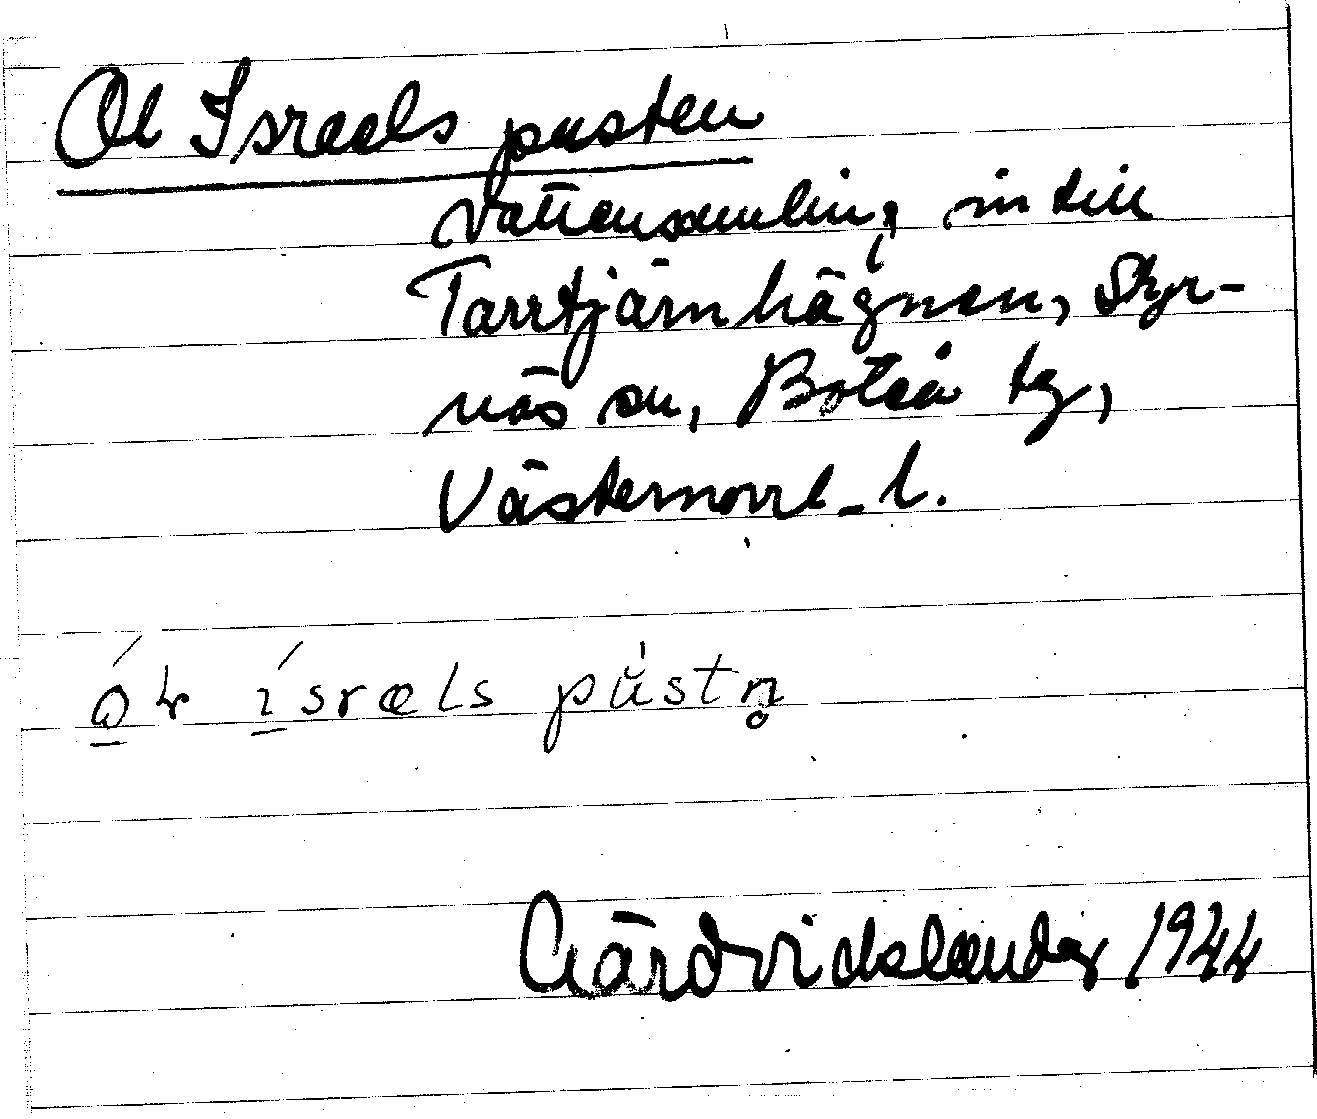 Ol Israels pusten
vattensamling, intill
Tarrtjärnhägnen, Skyr-
näs sn, Boteå tg,
Västernorrl. l.
ó̱ɫ í̱sræls pùstn̥
Gärdvidslander 1944